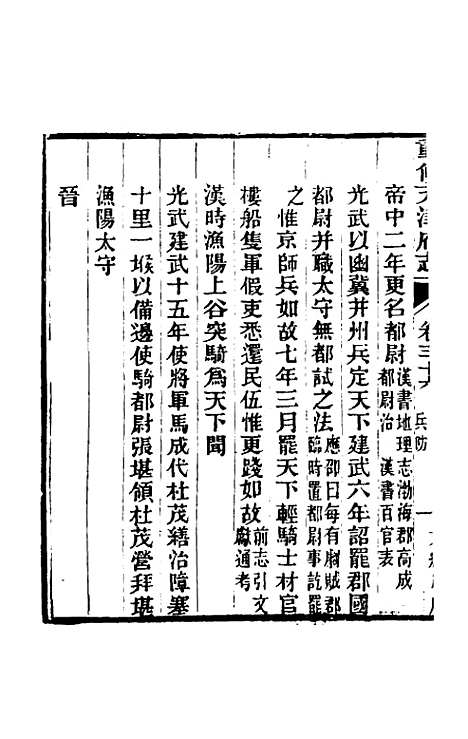 重修天津府志 卷三十六 兵防 一
帝中二年更名都尉漢書地理志渤海郡高成都尉治 漢書百官表
光武以幽冀并州兵定天下建武六年詔罷郡國
都尉并職太守無都試之法應卲曰每有劇賊郡臨時置都尉事訖罷
之惟京師兵如故七年三月罷天下輕騎士材官
樓船隻軍假吏悉還民伍惟更踐如故前志引文獻通考
漢時漁陽上谷突騎為天下聞
光武建武十五年使將軍馬成代杜茂繕治障塞
十里一堠以備邊使騎都尉張堪領杜茂營拜堪
漁陽太守
晉